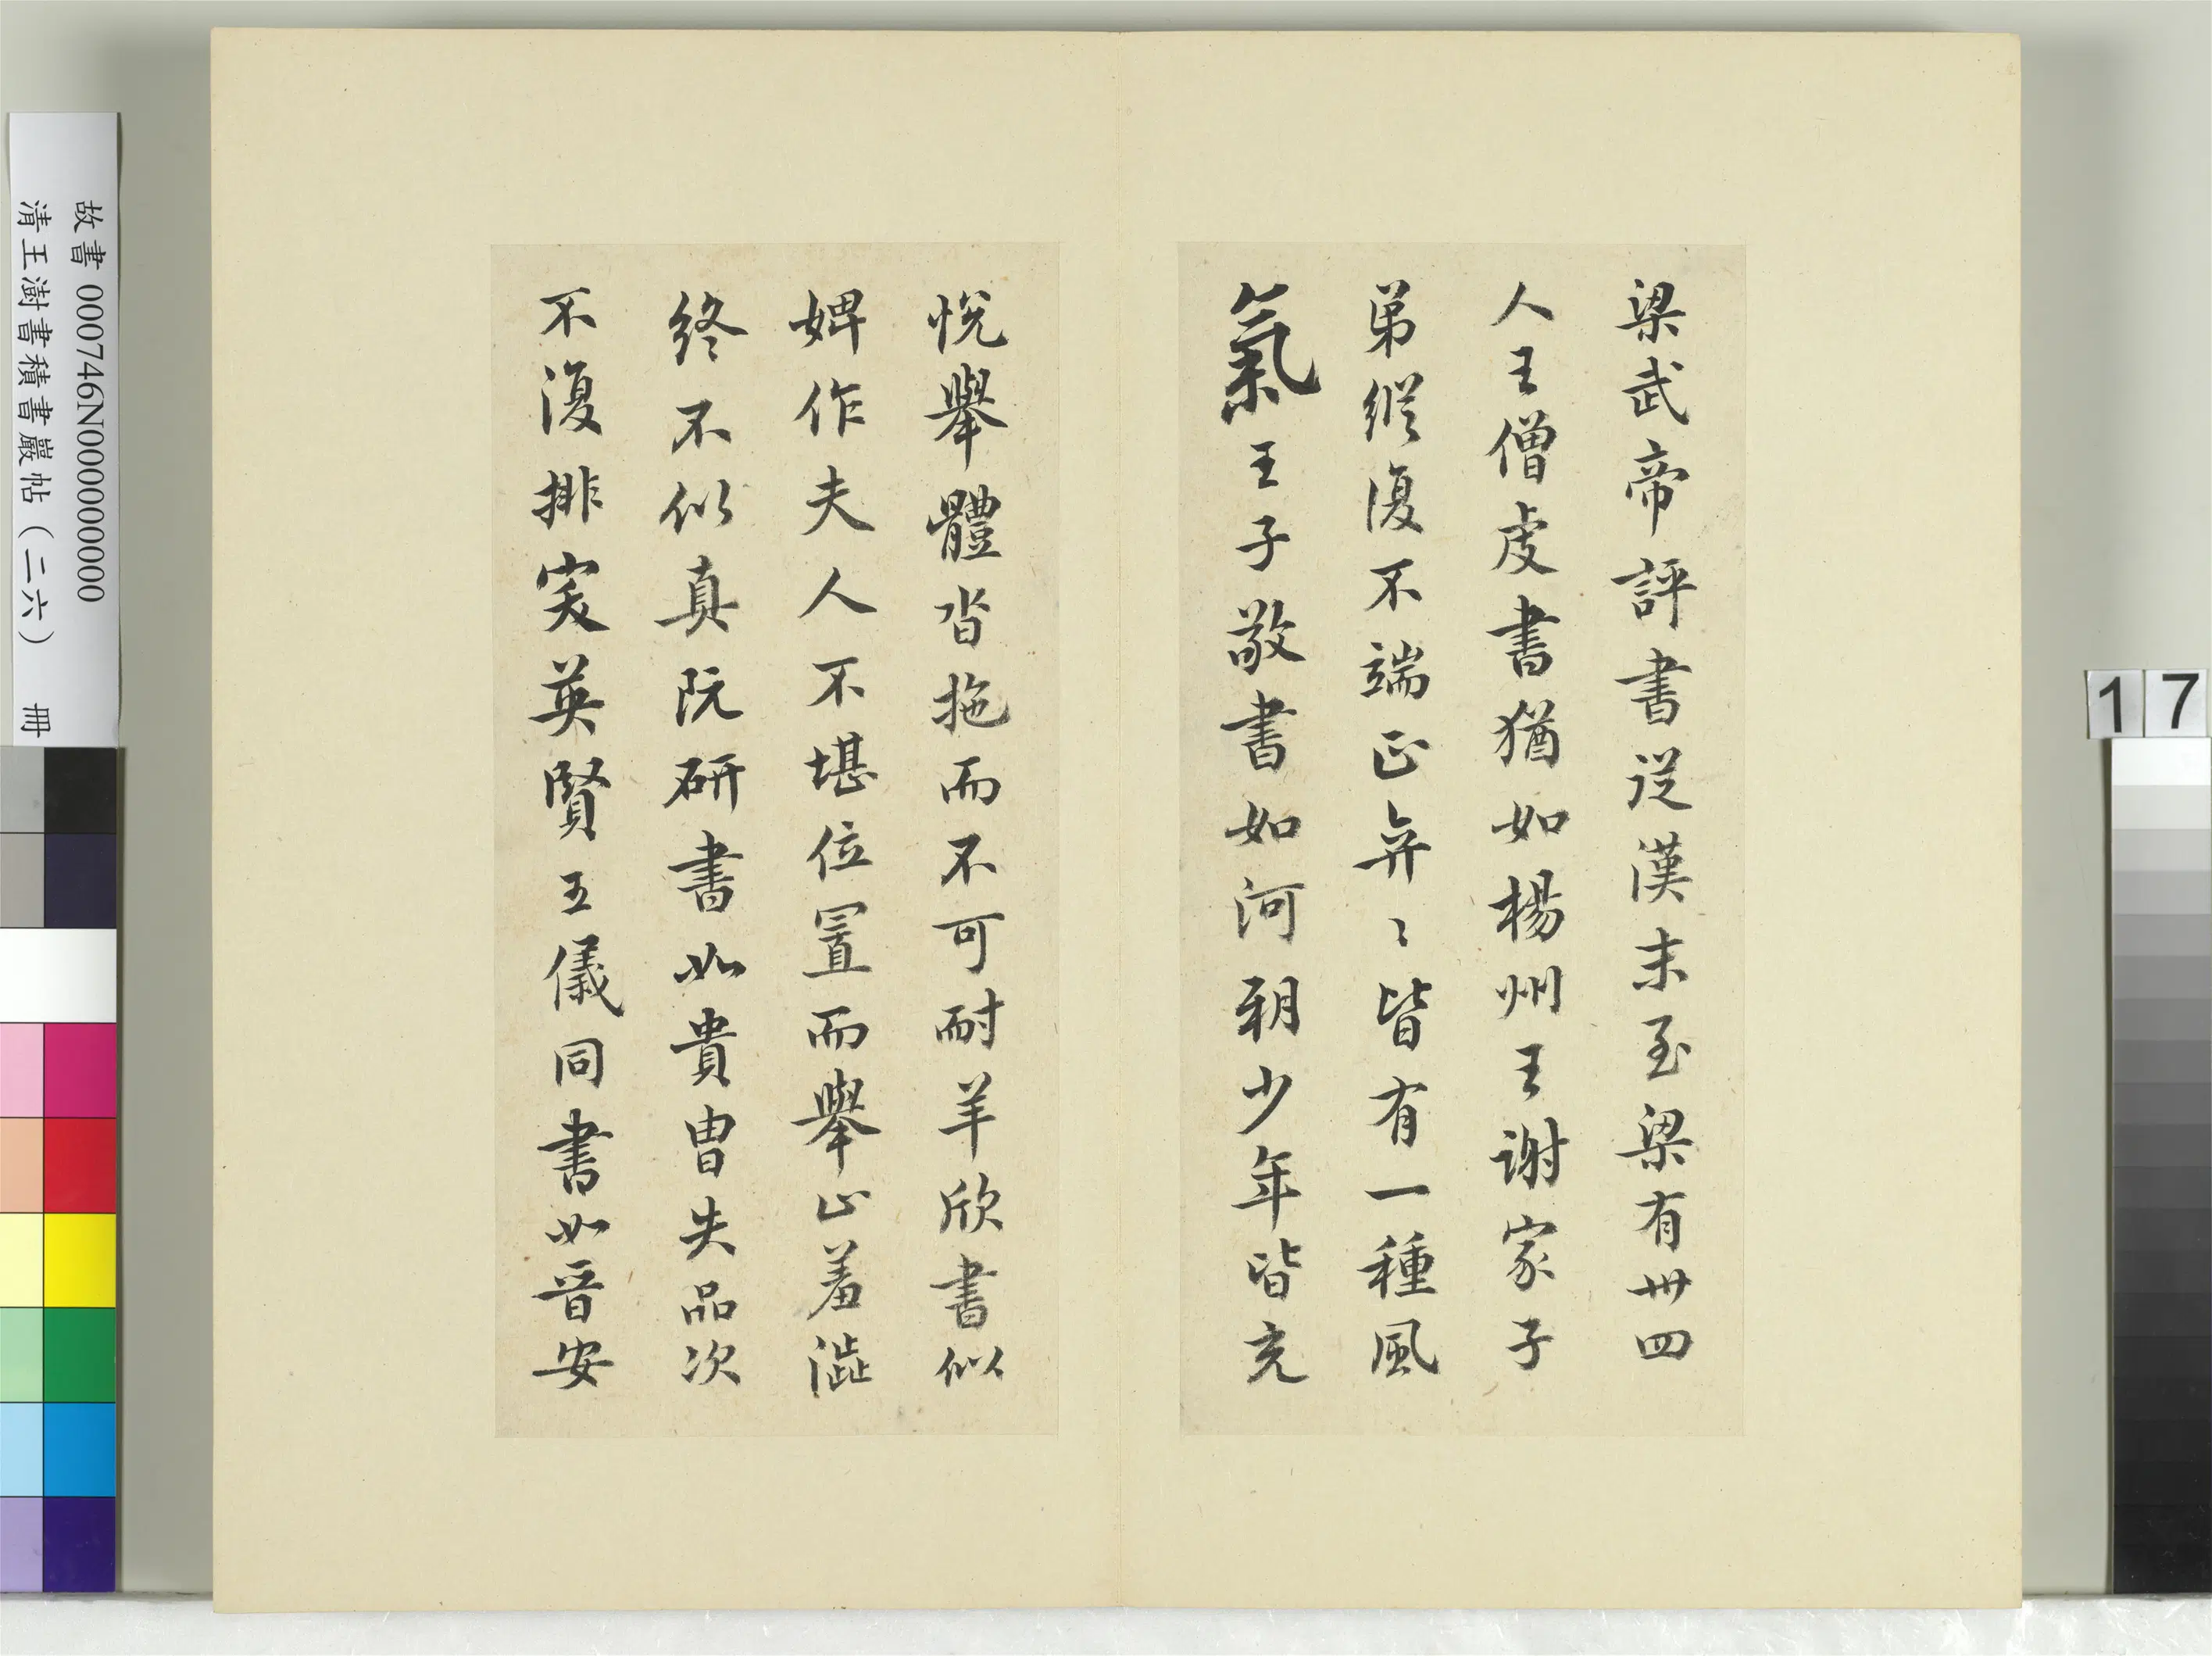 梁武帝評書從漢末至梁有卅四
人王僧虔書猶如楊州王謝家子
弟縱復不端正弈〻皆有一種風
氣王子敬書如河朔少年皆充
悅舉體沓拖而不可耐羊欣書似
婢作夫人不堪位置而舉止羞澁
終不似真阮研書如貴胄失品次
不復排突英賢王儀同書如晉安
故書 000746N000000000
清王澍書積書巖帖(二六) 冊
17